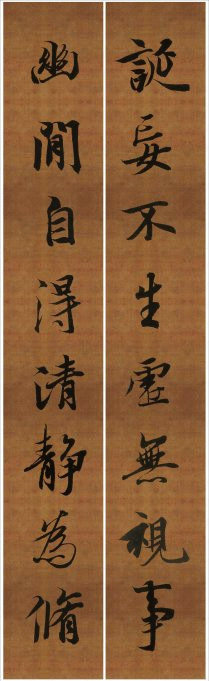 誕妄不生虛無視事
幽閒自得清靜為脩